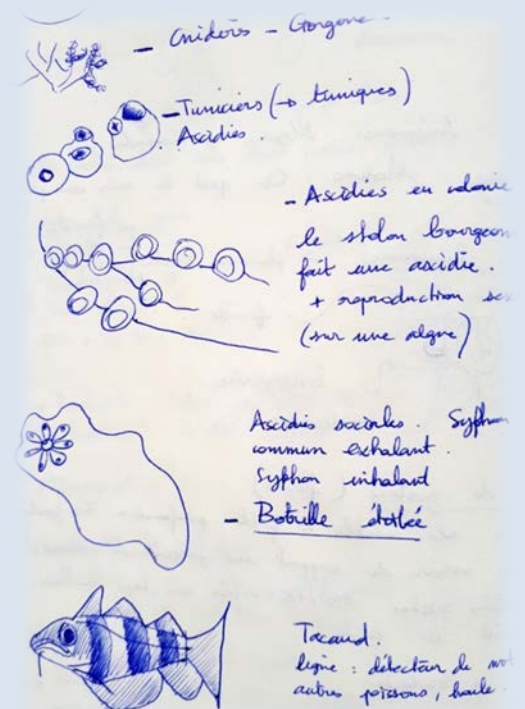 - Cnidaires - Gorgone
- Tuniciers (→ tuniques)
Ascidies.
- Ascidies en colonie
le stolon bourgeon
fait une ascidie.
+ reproduction
(sur une algue)
Ascidies sociales. Syphon
commun exhalant.
Syphon inhalant
- Botrille étoilée
Tacaud.
ligne : détecteur de
autres poissons, houle.